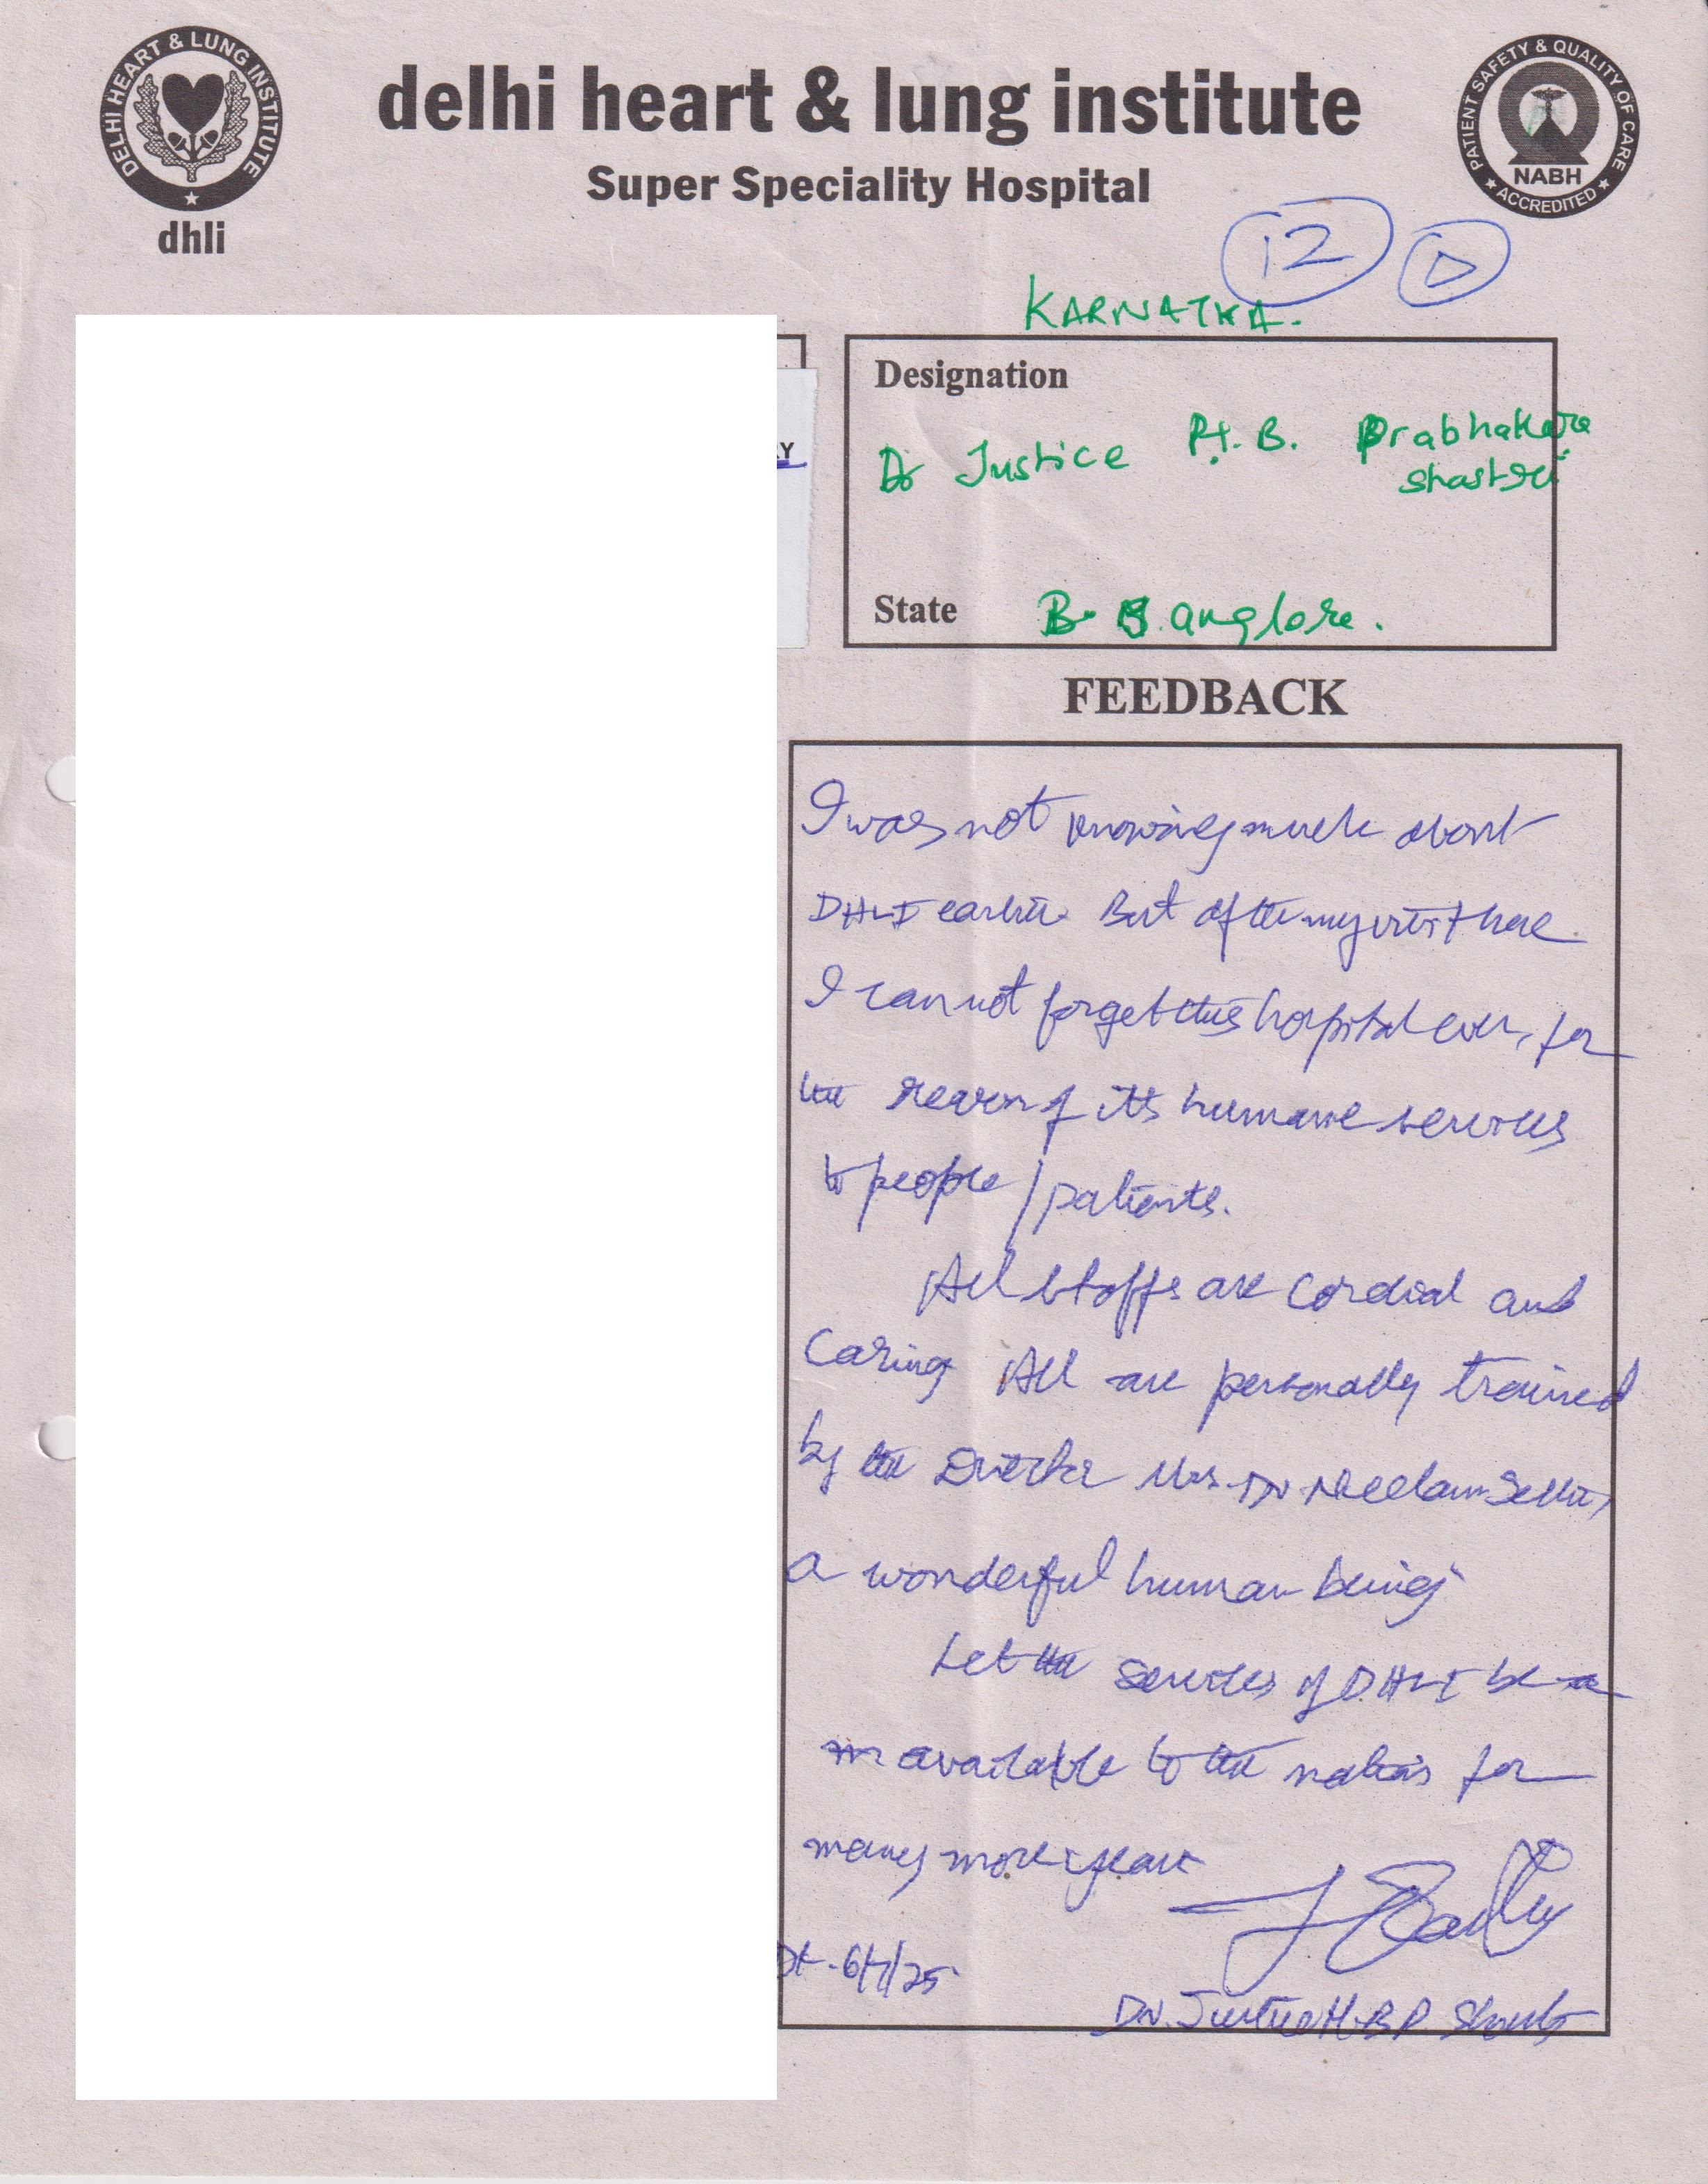 DELHI HEART & LUNG INSTITUTE
dhli
delhi heart & lung institute
Super Speciality Hospital
PATIENT SAFETY & QUALITY OF CARE
NABH
ACCREDITED
12
D
KARNATKA.
Designation
Dr Justice H. B. Prabhakara
Shastri
State B. B.anglore.
FEEDBACK
I was not knowing much about
DHLI earlier. But after my visit here
I cannot forget this hospital ever, for
the reason of its humane services
to people / patients.
All staffs are cordial and
caring All are personally trained
by the Director Mrs. Dr Neelam Sethi,
a wonderful human being
Let the services of DHLI be
available to the nation for
many more years
Dt. 6/7/25
Dr. Justice H.B.P. Shastri